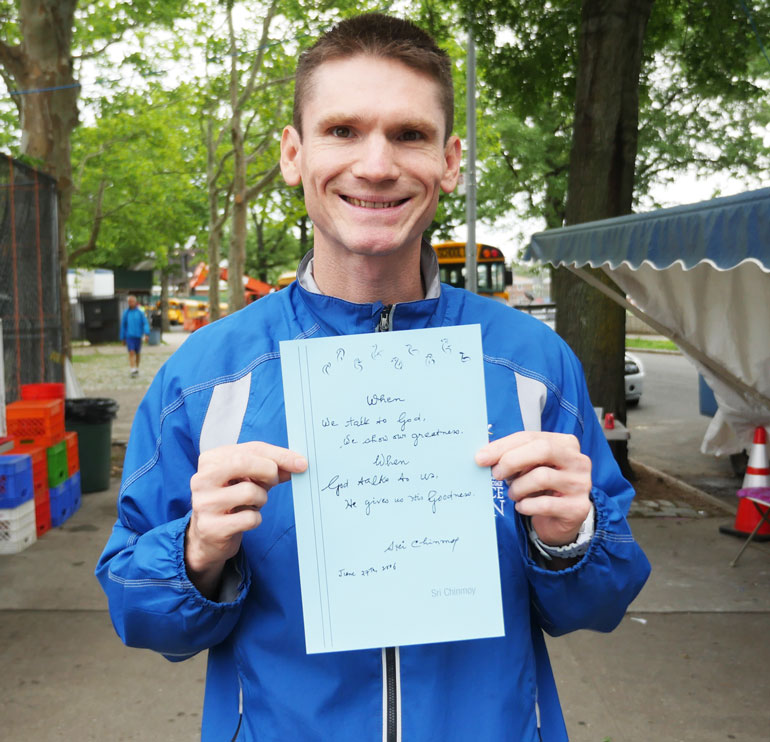 SCHOOL
When
We talk to God,
We show our greatness.
When
God talks to us,
He gives us His Goodness.
Sri Chinmoy
June 27th 2006
Sri Chinmoy